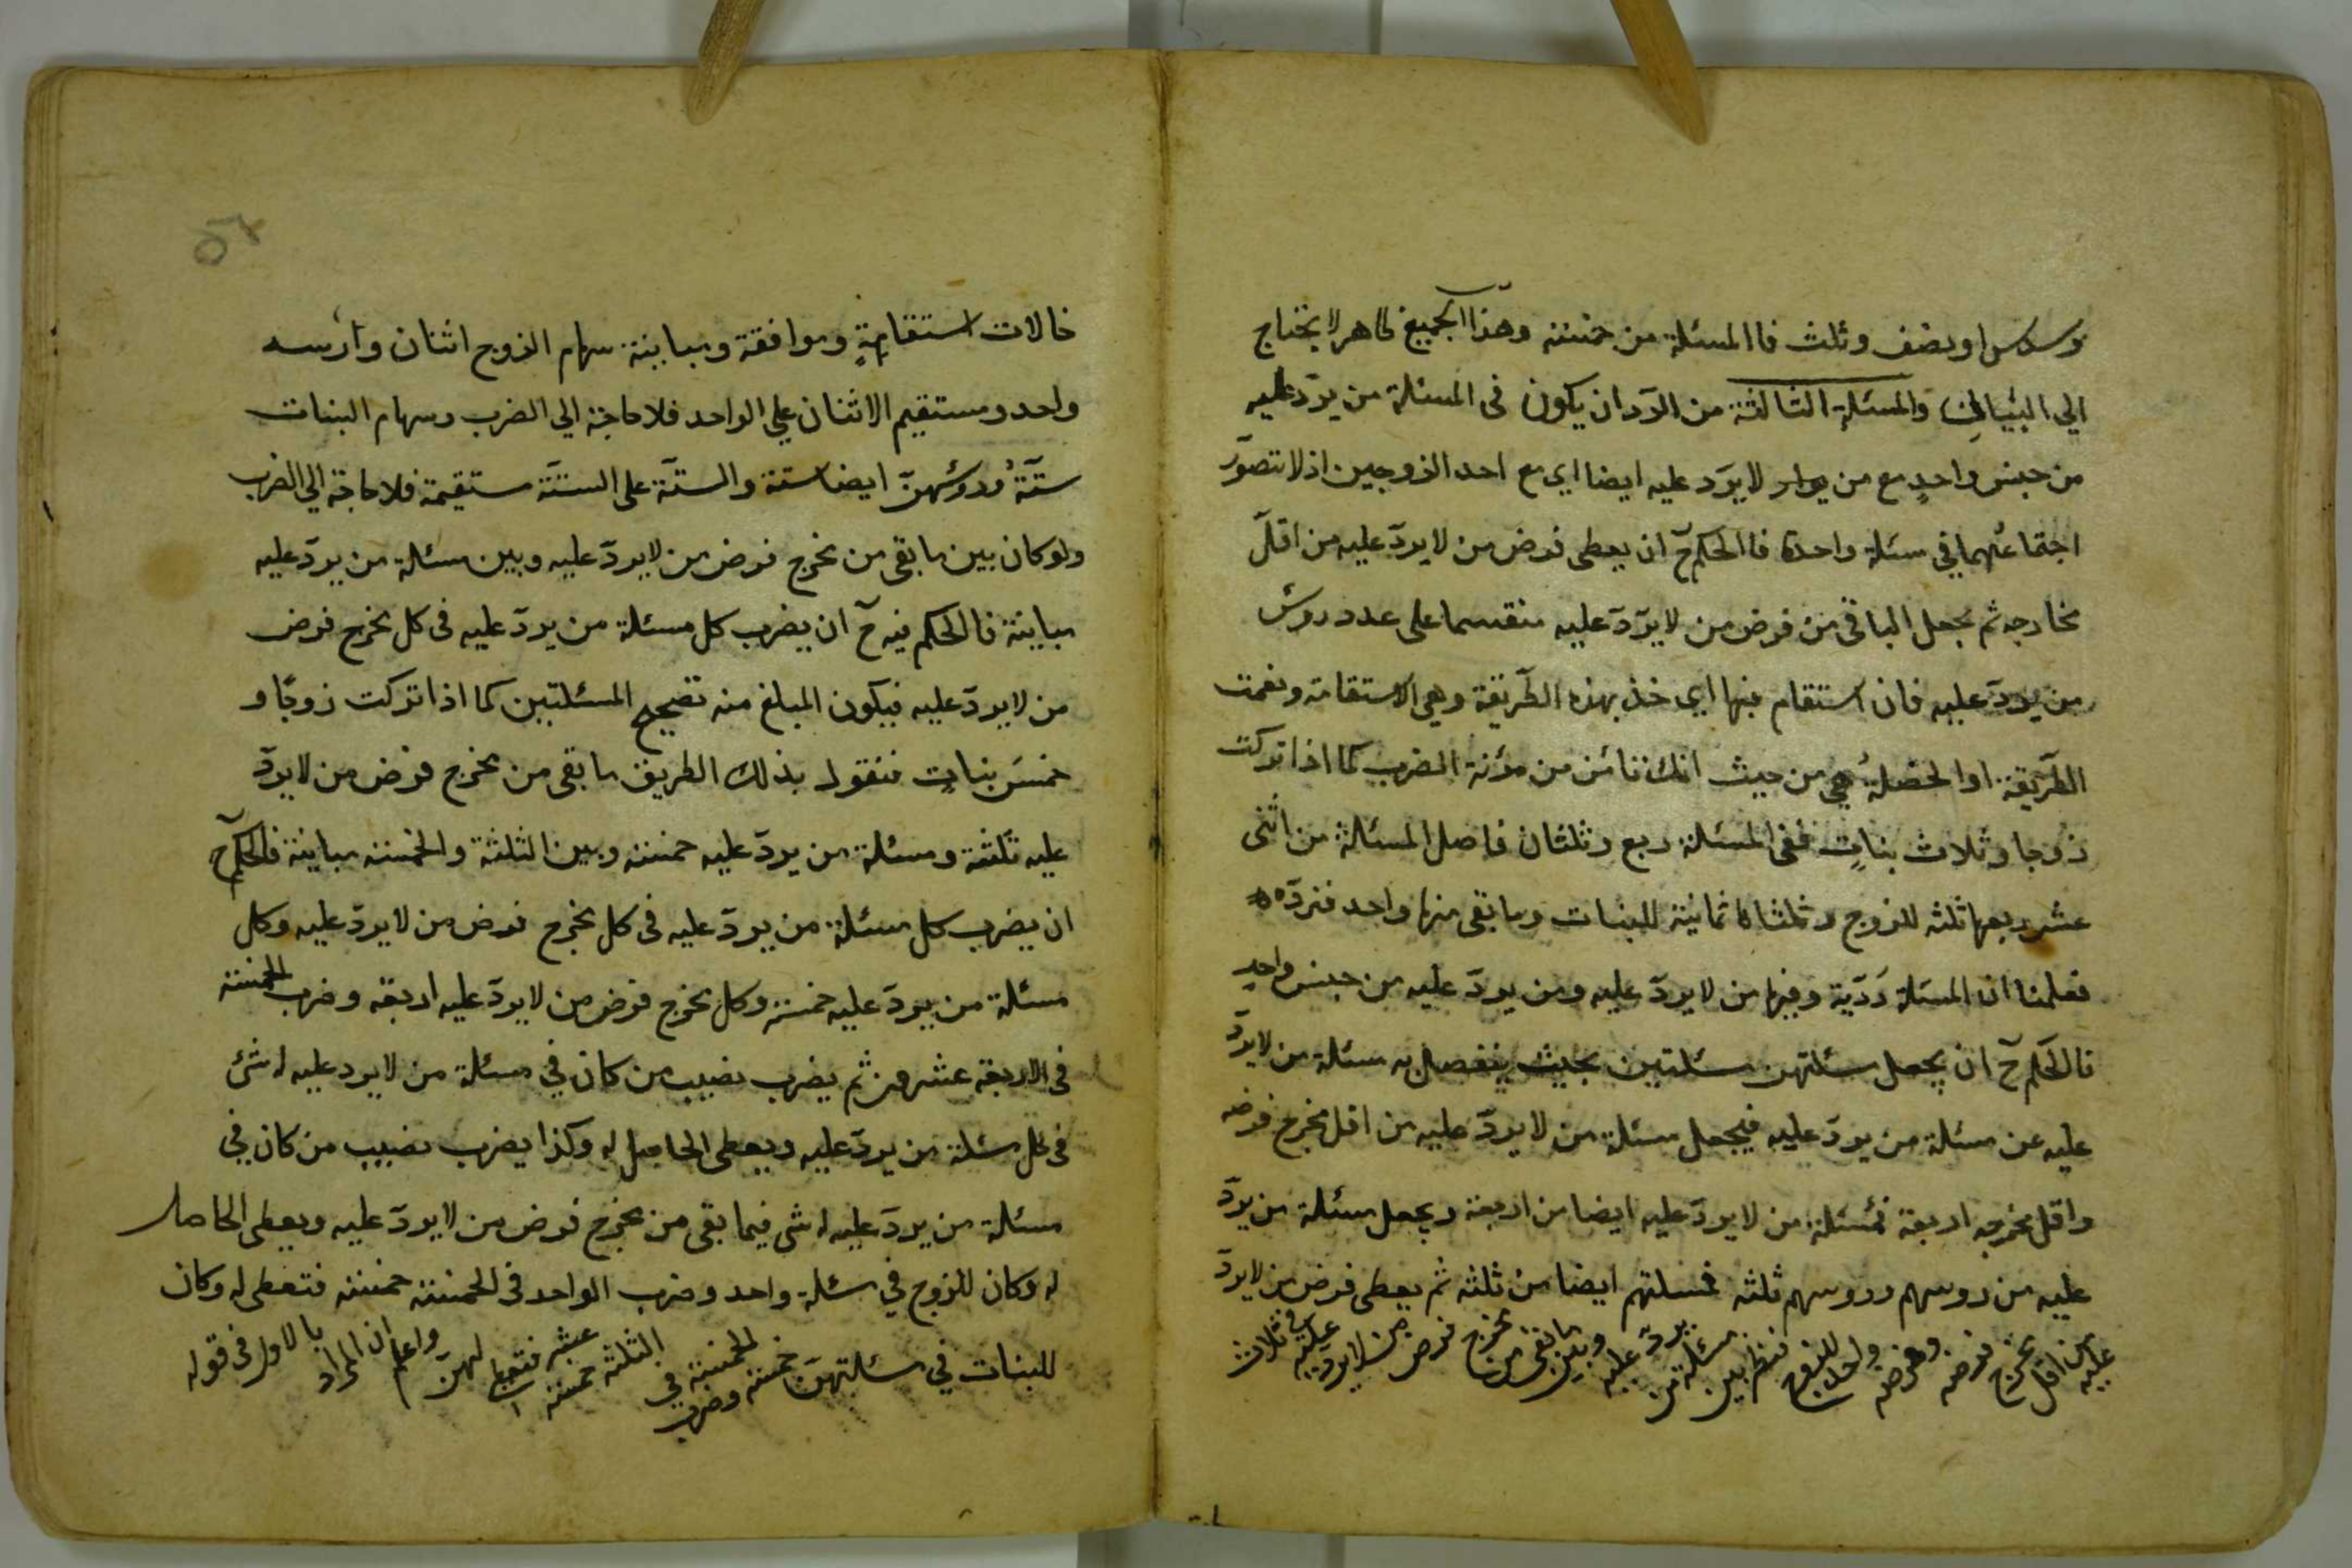 وسدس او نصف وثلث فاالمسئلة من خمسة وهذا الجميع ظاهر لا يحتاج
الي البيان والمسئلة الثالثة من الرّد ان يكون فى المسئلة من يردّ عليه
من جنس واحدٍ مع من لا يرَد عليه ايضا اى مع احد الزوجين اذ لا تتصوّر
اجتماعُهما في مسئلة واحدة فاالحكم حٓ ان يعطى فرض من لا يردّ عليه من اقلّ
مخارجه ثم يجعل الباقى من فرض من لا يردّ عليه منقسما على عدد روس
من يردّ عليه فان استقام فبها اى خذ بهذه الطّريقة وهي الاستقامة ونعمت
الطّريقة او الخصلةُ هي من حيث انك تأمن من مؤنة الضرب كما اذا تركت
زوجا وثلاث بناتٍ ففى المسئلة ربع وثلثان فاصل المسئالة من اثنى
عشر ربعها ثلثه للزوج وثلثاها ثمانية للبنات وما بقى منها واحد فنردّه
فعلمنا ان المسئلة رَدّية وفيها من لا يردّ عليه ومن يردّ عليه من جنس واحدٍ
فالحكم حٓ ان يجعل مسئلتهن مسئلتين بحيث ينفصل به مسئلة من لا يردّ
عليه عن مسئلة من يردّ عليه فيجعل مسئلة من لا يردّ عليه من اقل مخرج فرضه
واقل مخرجه اربعة فمسئلة من لا يردّ عليه ايضا من اربعة ويجعل مسئلة من يردّ
عليه من روسهم وروسهم ثلثه فمسلتهم ايضا من ثلثه ثم يعطى فرض من لا يردّ
عليه من اقل مخرج فرضه وفرضه واحد للزوج فننظر بين مسئلة من يردّ عليه وبين ما بقى من مخرج فرض من لا يرد عليه ثلاث
خالات استقامةٍ وموافقة ومباينة سهام الزوج اثنان ورأسه
واحد ومستقيم الاثنان علي الواحد فلا حاجة الي الضرب وسهام البنات
ستّةٌ ورؤسُهنّ ايضا ستة والستّة على الستّة مستقيمة فلا حاجة الي الضرب
ولو كان بين ما بقى من مخرج فرض من لا يردّ عليه وبين مسئلة من يردّ عليه
مباينة فالحكم فيه حٓ ان يضرب كل مسئلة من يردّ عليه فى كل مخرج فرض
من لا يردّ عليه فيكون المبلغ منه تصحيح المسئلتين كما اذا تركت زوجًا و
خمسَ بناتٍ فنقول بذلك الطريق ما بقى من مخرج فرض من لا يردّ
عليه ثلثة ومسئلة من يردّ عليه خمسة وبين الثلثة والخمسة مباينة فالحكم حٓ
ان يضرب كل مسئلة من يردّ عليه فى كل مخرج فرض من لا يردّ عليه وكل
مسئلة من يردّ عليه خمسة وكل مخرج فرض من لا يردّ عليه اربعة وضرب الخمسة
فى الاربعة عشرون ثم يضرب نصيب من كان في مسئلة من لا يرد عليه له شئ
فى كل مسئلة من يردّ عليه ويعطى الحاصل له وكذا يضرب نصيب من كان في
مسئلة من يردّ عليه له شى فيما بقى من مخرج فرض من لا يردّ عليه ويعطى الحاصل
له وكان للزوج في مسئلة واحد وضرب الواحد فى الخمسة خمسة فتعطى له وكان
للبنات في مسئلتهنّ خمسة وضرب الخمسة في الثلثة خمسة عشر فتعطى لهنّ واعلم ان المراد بالاول فى قوله